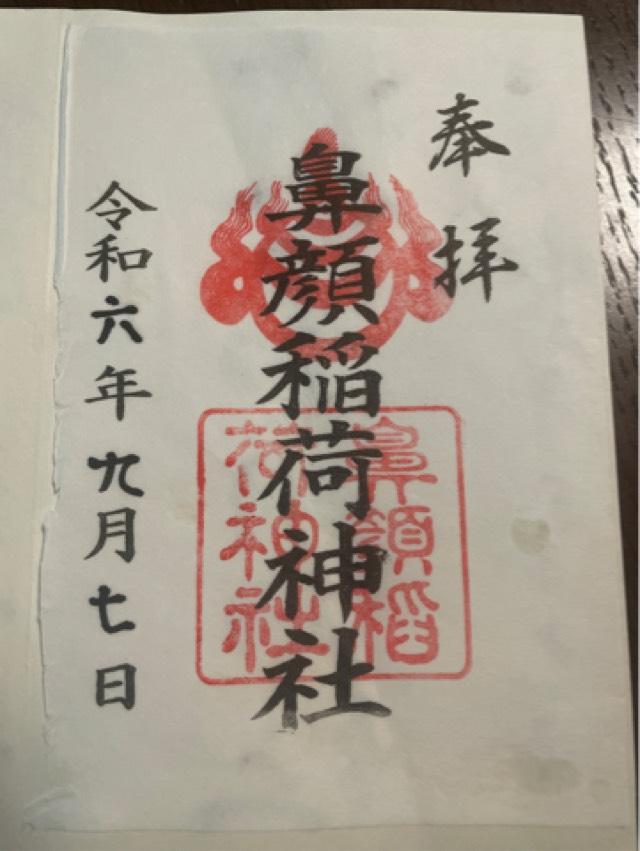 奉拝
鼻顔稲荷神社
鼻顔稲
荷神社
令和六年九月七日